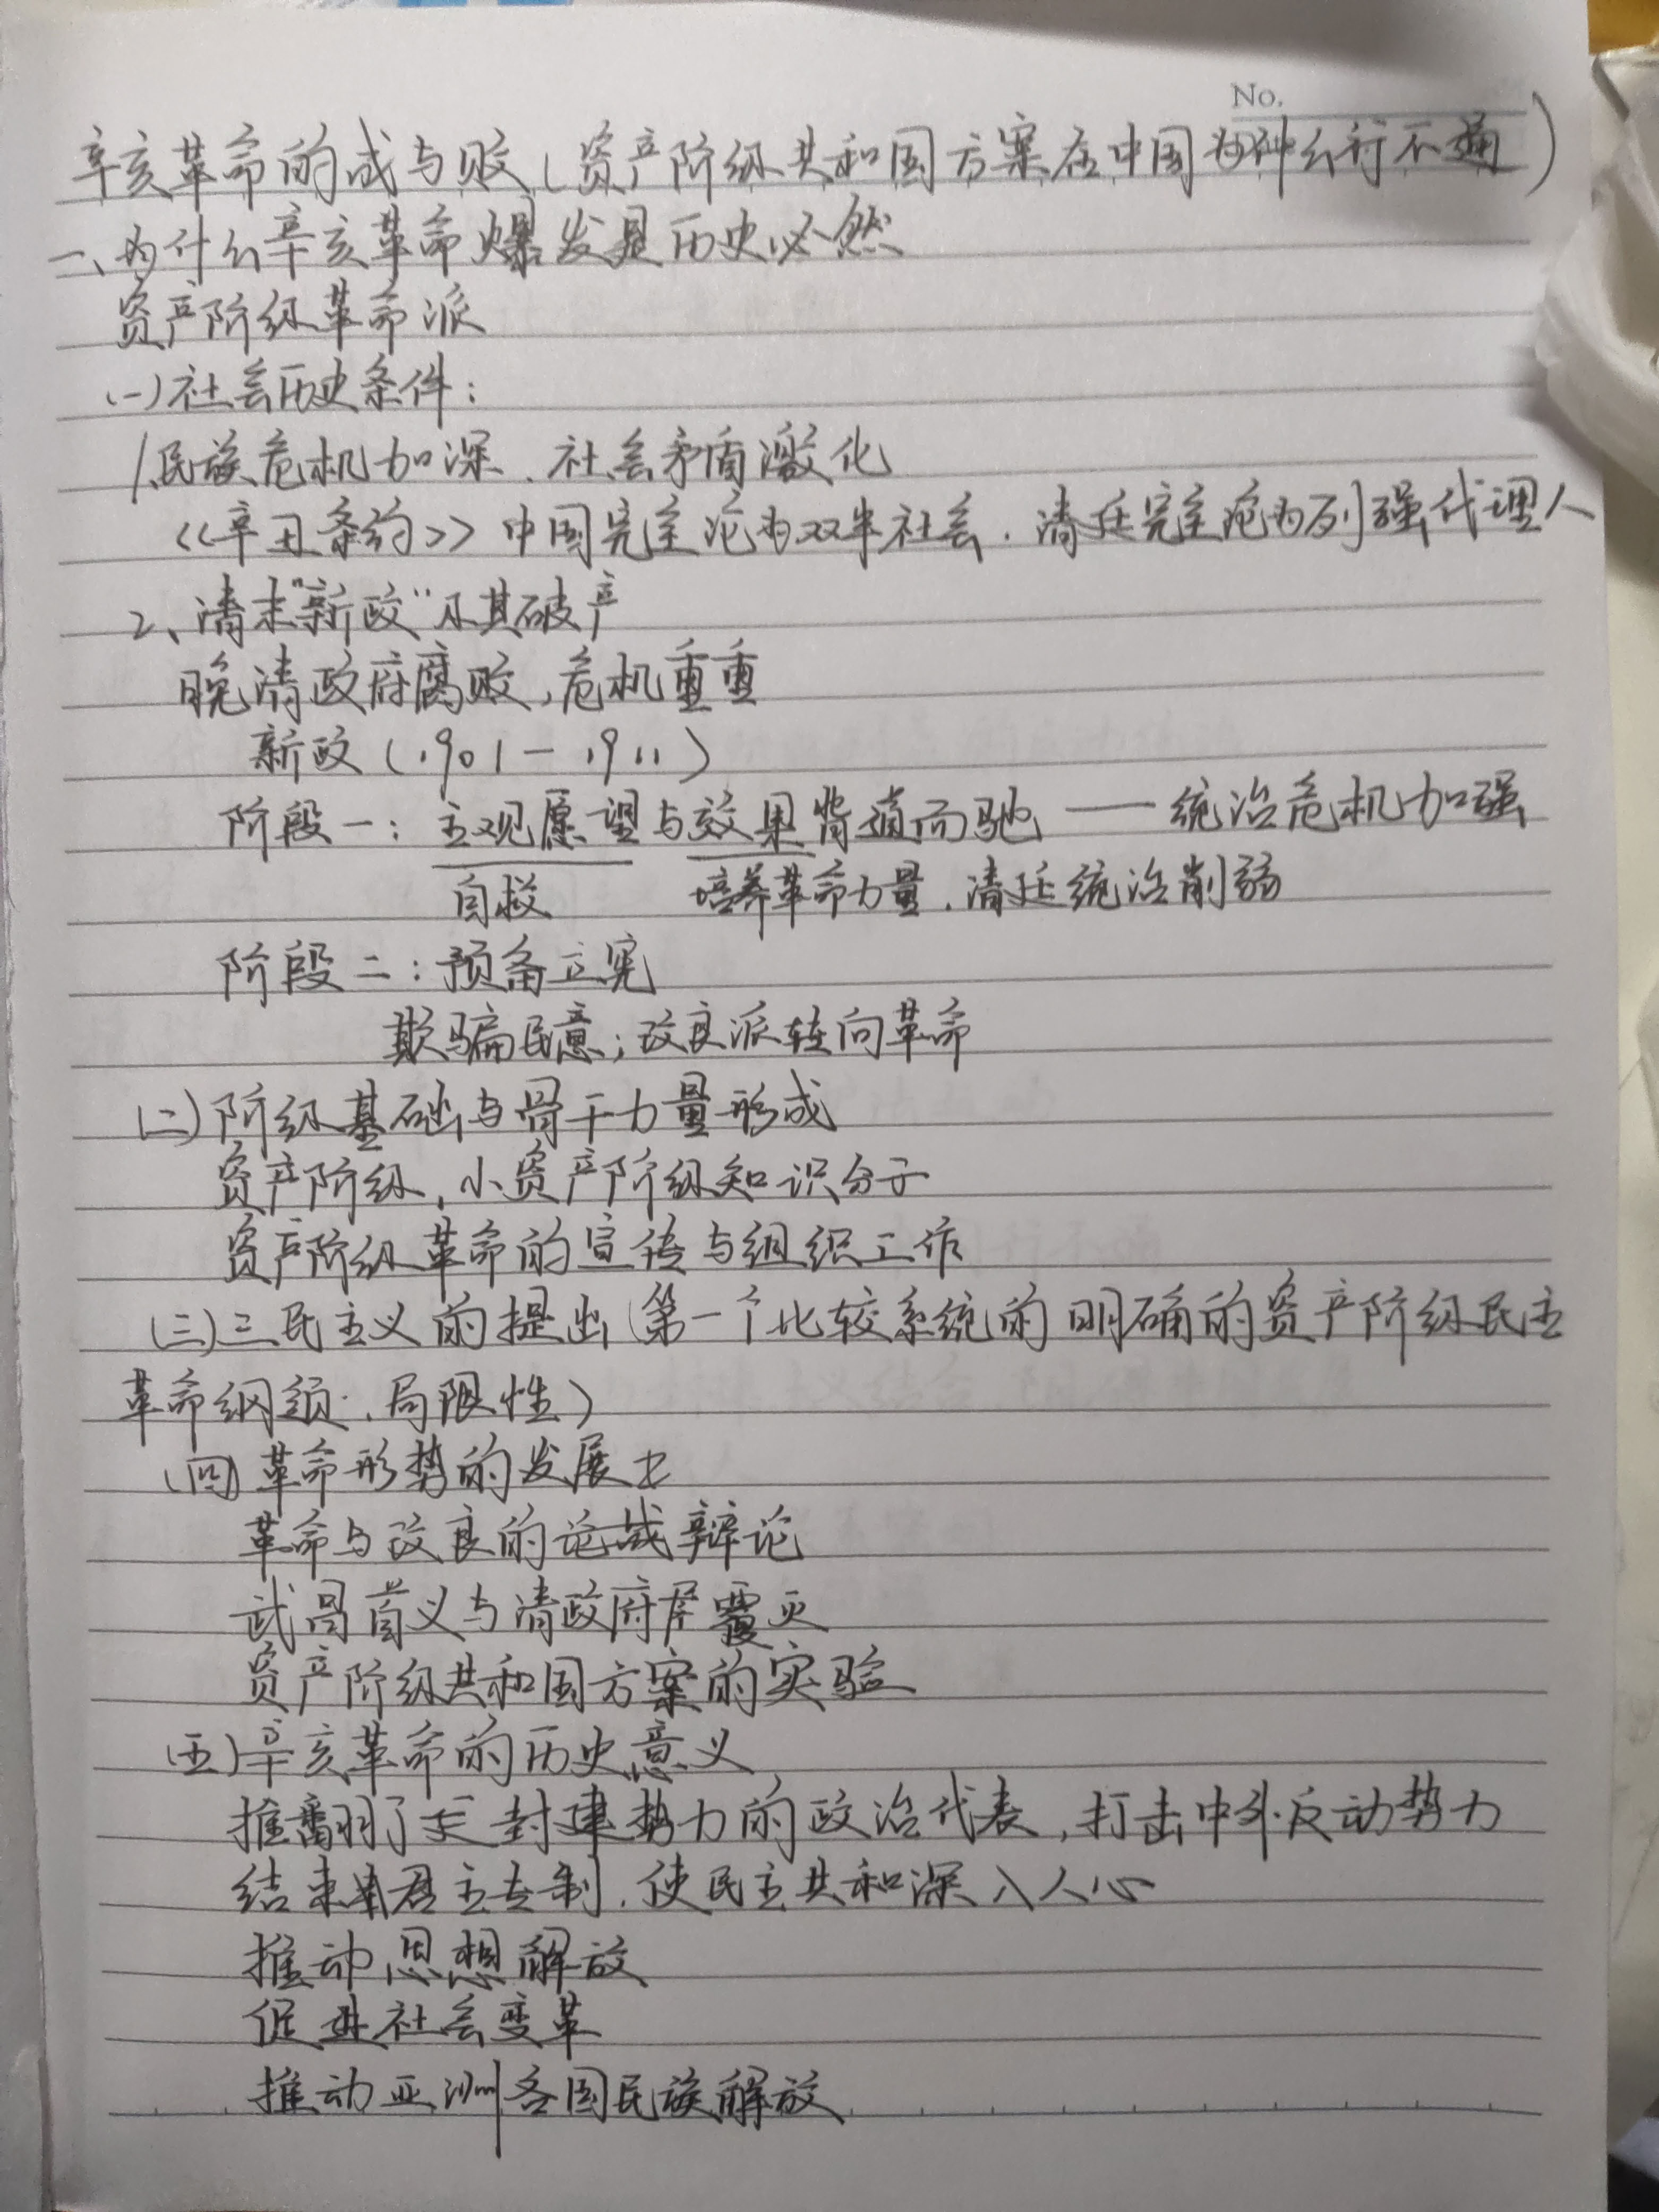 No.
辛亥革命的成与败(资产阶级共和国方案在中国为什么行不通)
一、为什么辛亥革命爆发是历史必然
资产阶级革命派
(一)社会历史条件:
1.民族危机加深、社会矛盾激化
《辛丑条约》中国完全沦为双半社会.清廷完全沦为列强代理人
2、清末"新政"及其破产
晚清政府腐败,危机重重
新政(1901-1911)
阶段一:主观愿望与效果背道而驰——统治危机加强
自救 培养革命力量.清廷统治削弱
阶段二:预备立宪
欺骗民意;改良派转向革命
(二)阶级基础与骨干力量形成
资产阶级,小资产阶级知识分子
资产阶级革命的宣传与组织工作
(三)三民主义的提出(第一个比较系统的明确的资产阶级民主
革命纲领.局限性)
(四)革命形势的发展
革命与改良的论战辩论
武昌首义与清政府覆灭
资产阶级共和国方案的实验
(五)辛亥革命的历史意义
推翻了封建势力的政治代表,打击中外反动势力
结束君主专制.使民主共和深入人心
推动思想解放
促进社会变革
推动亚洲各国民族解放